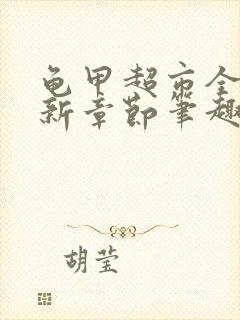 龟甲超市全
新章節筆趣
胡莹